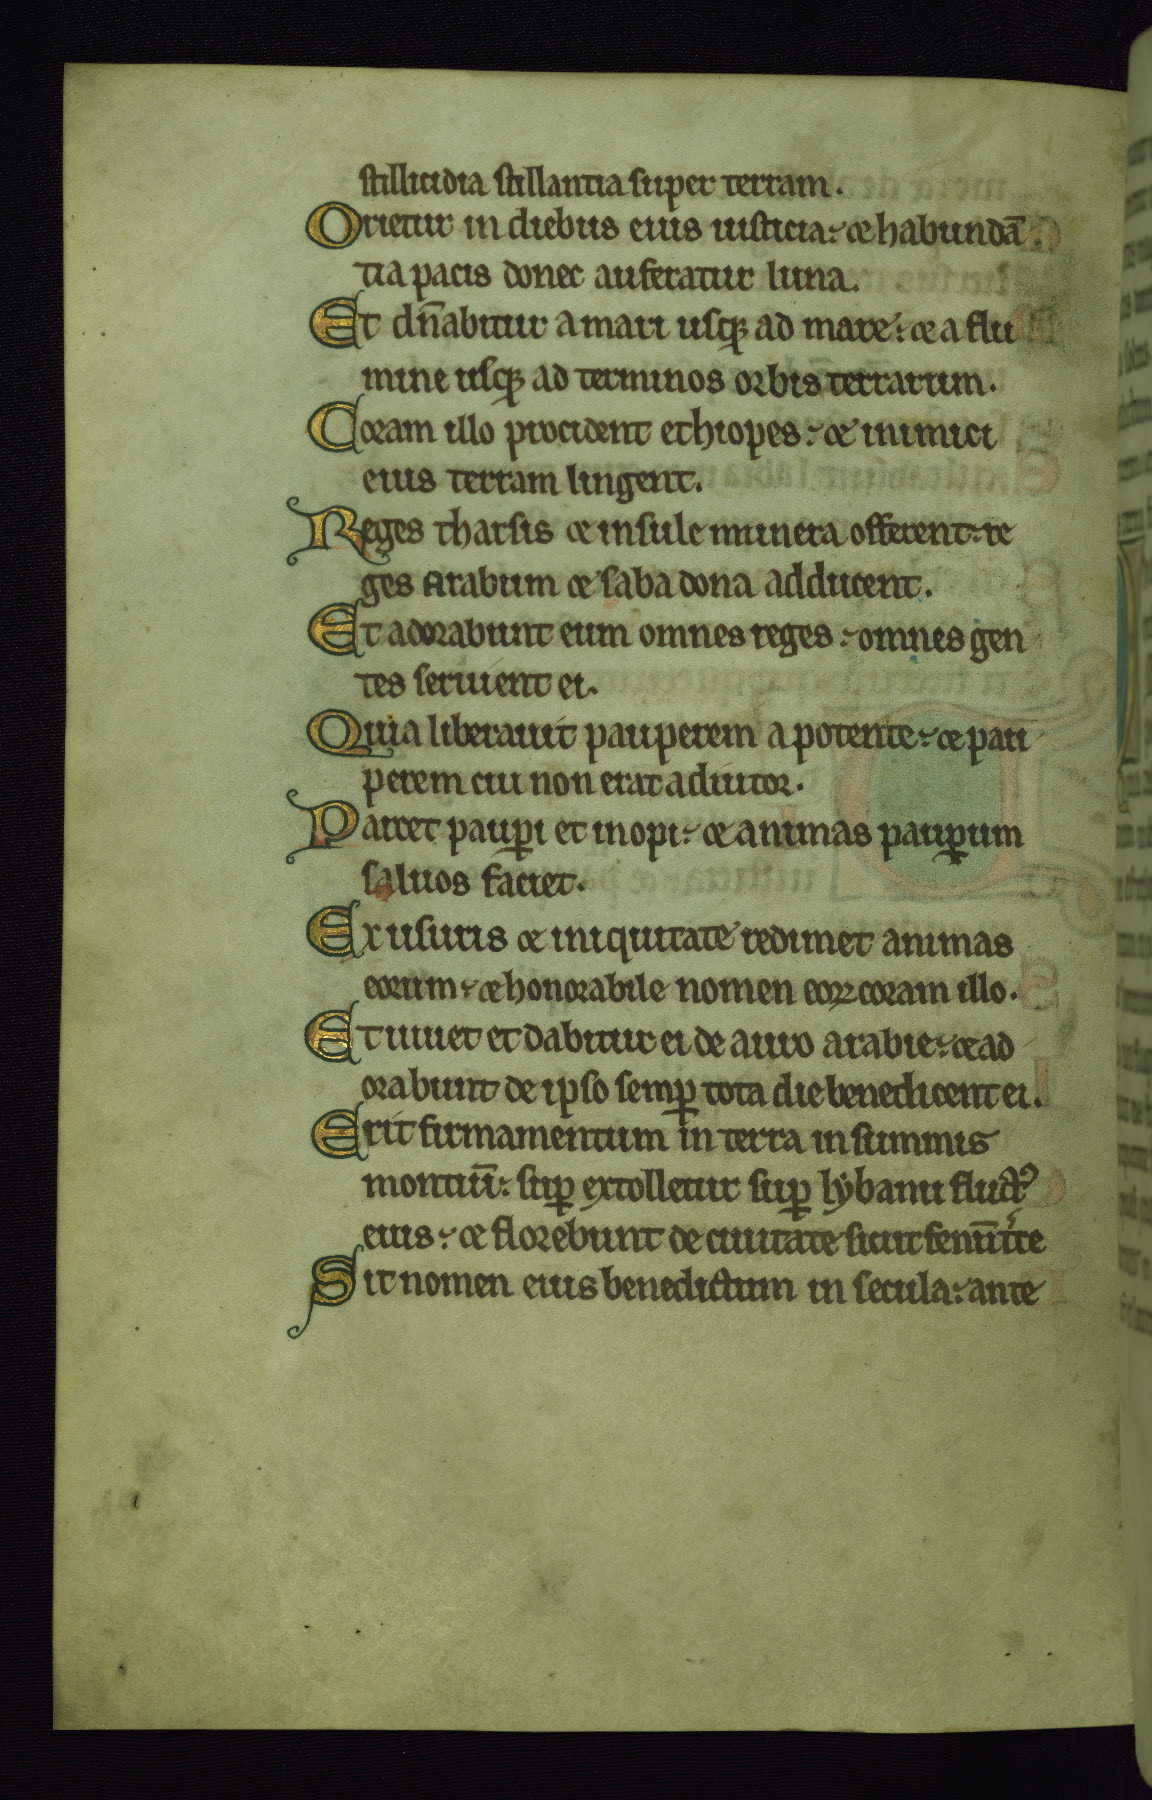 stillicidia stillantia super terram.
Orietur in diebus eius iusticia: & habundā
tia pacis donec auferatur luna.
Et dn̄abitur a mari usq; ad mare: & a flu
mine usq; ad terminos orbis terrarum.
Coram illo procident ethiopes: & inimici
eius terram lingent.
Reges tharsis & insule munera offerent: re
ges arabum & saba dona adducent.
Et adorabunt eum omnes reges: omnes gen
tes seruient ei.
Quia liberauit pauperem a potente: & pau
perem cui non erat adiutor.
Parcet paup̱i et inopi: & animas paup̱um
saluos faciet.
Ex usuris & iniquitate redimet animas
eorum: & honorabile nomen eoꝝ coram illo.
Et uiuet et dabitur ei de auro arabie: & ad
orabunt de ipso semp̱ tota die benedicent ei.
Erit firmamentum in terra in summis
montiū: sup̱ extolletur sup̱ lybanu fluct᾽
eius: & florebunt de ciuitate sicut fenū t͛re
Sit nomen eius benedictum in secula: ante